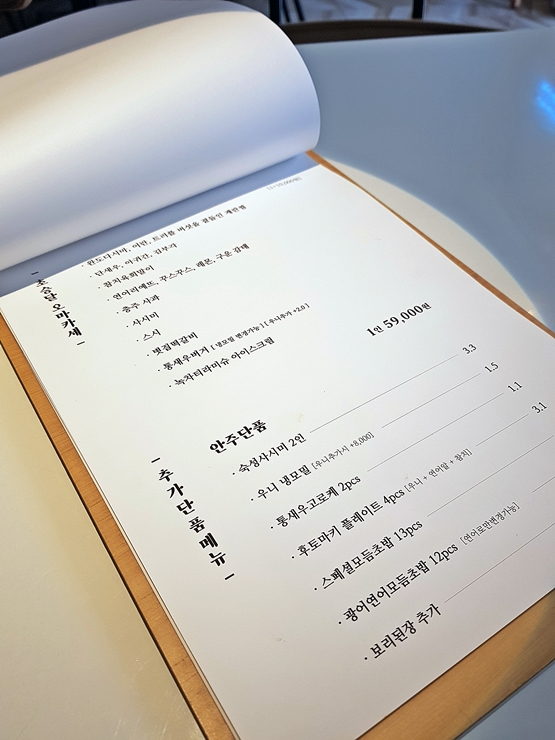 - 초승달 오마카세 -
· 완도다시마, 어란, 트러플 버섯을 곁들인 계란찜
· 단새우, 아귀간, 감부각
· 참치육회말이
· 연어리예뜨, 쿠스쿠스, 레몬, 구운 감태
· 충주 사과
· 사시미
· 스시
· 볏짚떡갈비
· 통새우버거 [ 냉모밀 변경가능 ] [ 우니추가 +2.0 ]
· 녹차티라미슈 아이스크림
1인 59,000원
- 추가단품메뉴 -
안주단품
· 숙성사시미 2인 3.3
· 우니 냉모밀 [우니추가시 +8,000] 1.5
· 통새우고로케 2pcs 1.1
· 후토마키 플레이트 4pcs [우니 + 연어알 + 참치] 3.1
· 스페셜모듬초밥 13pcs
· 광어연어모듬초밥 12pcs [연어로만변경가능]
· 보리된장 추가